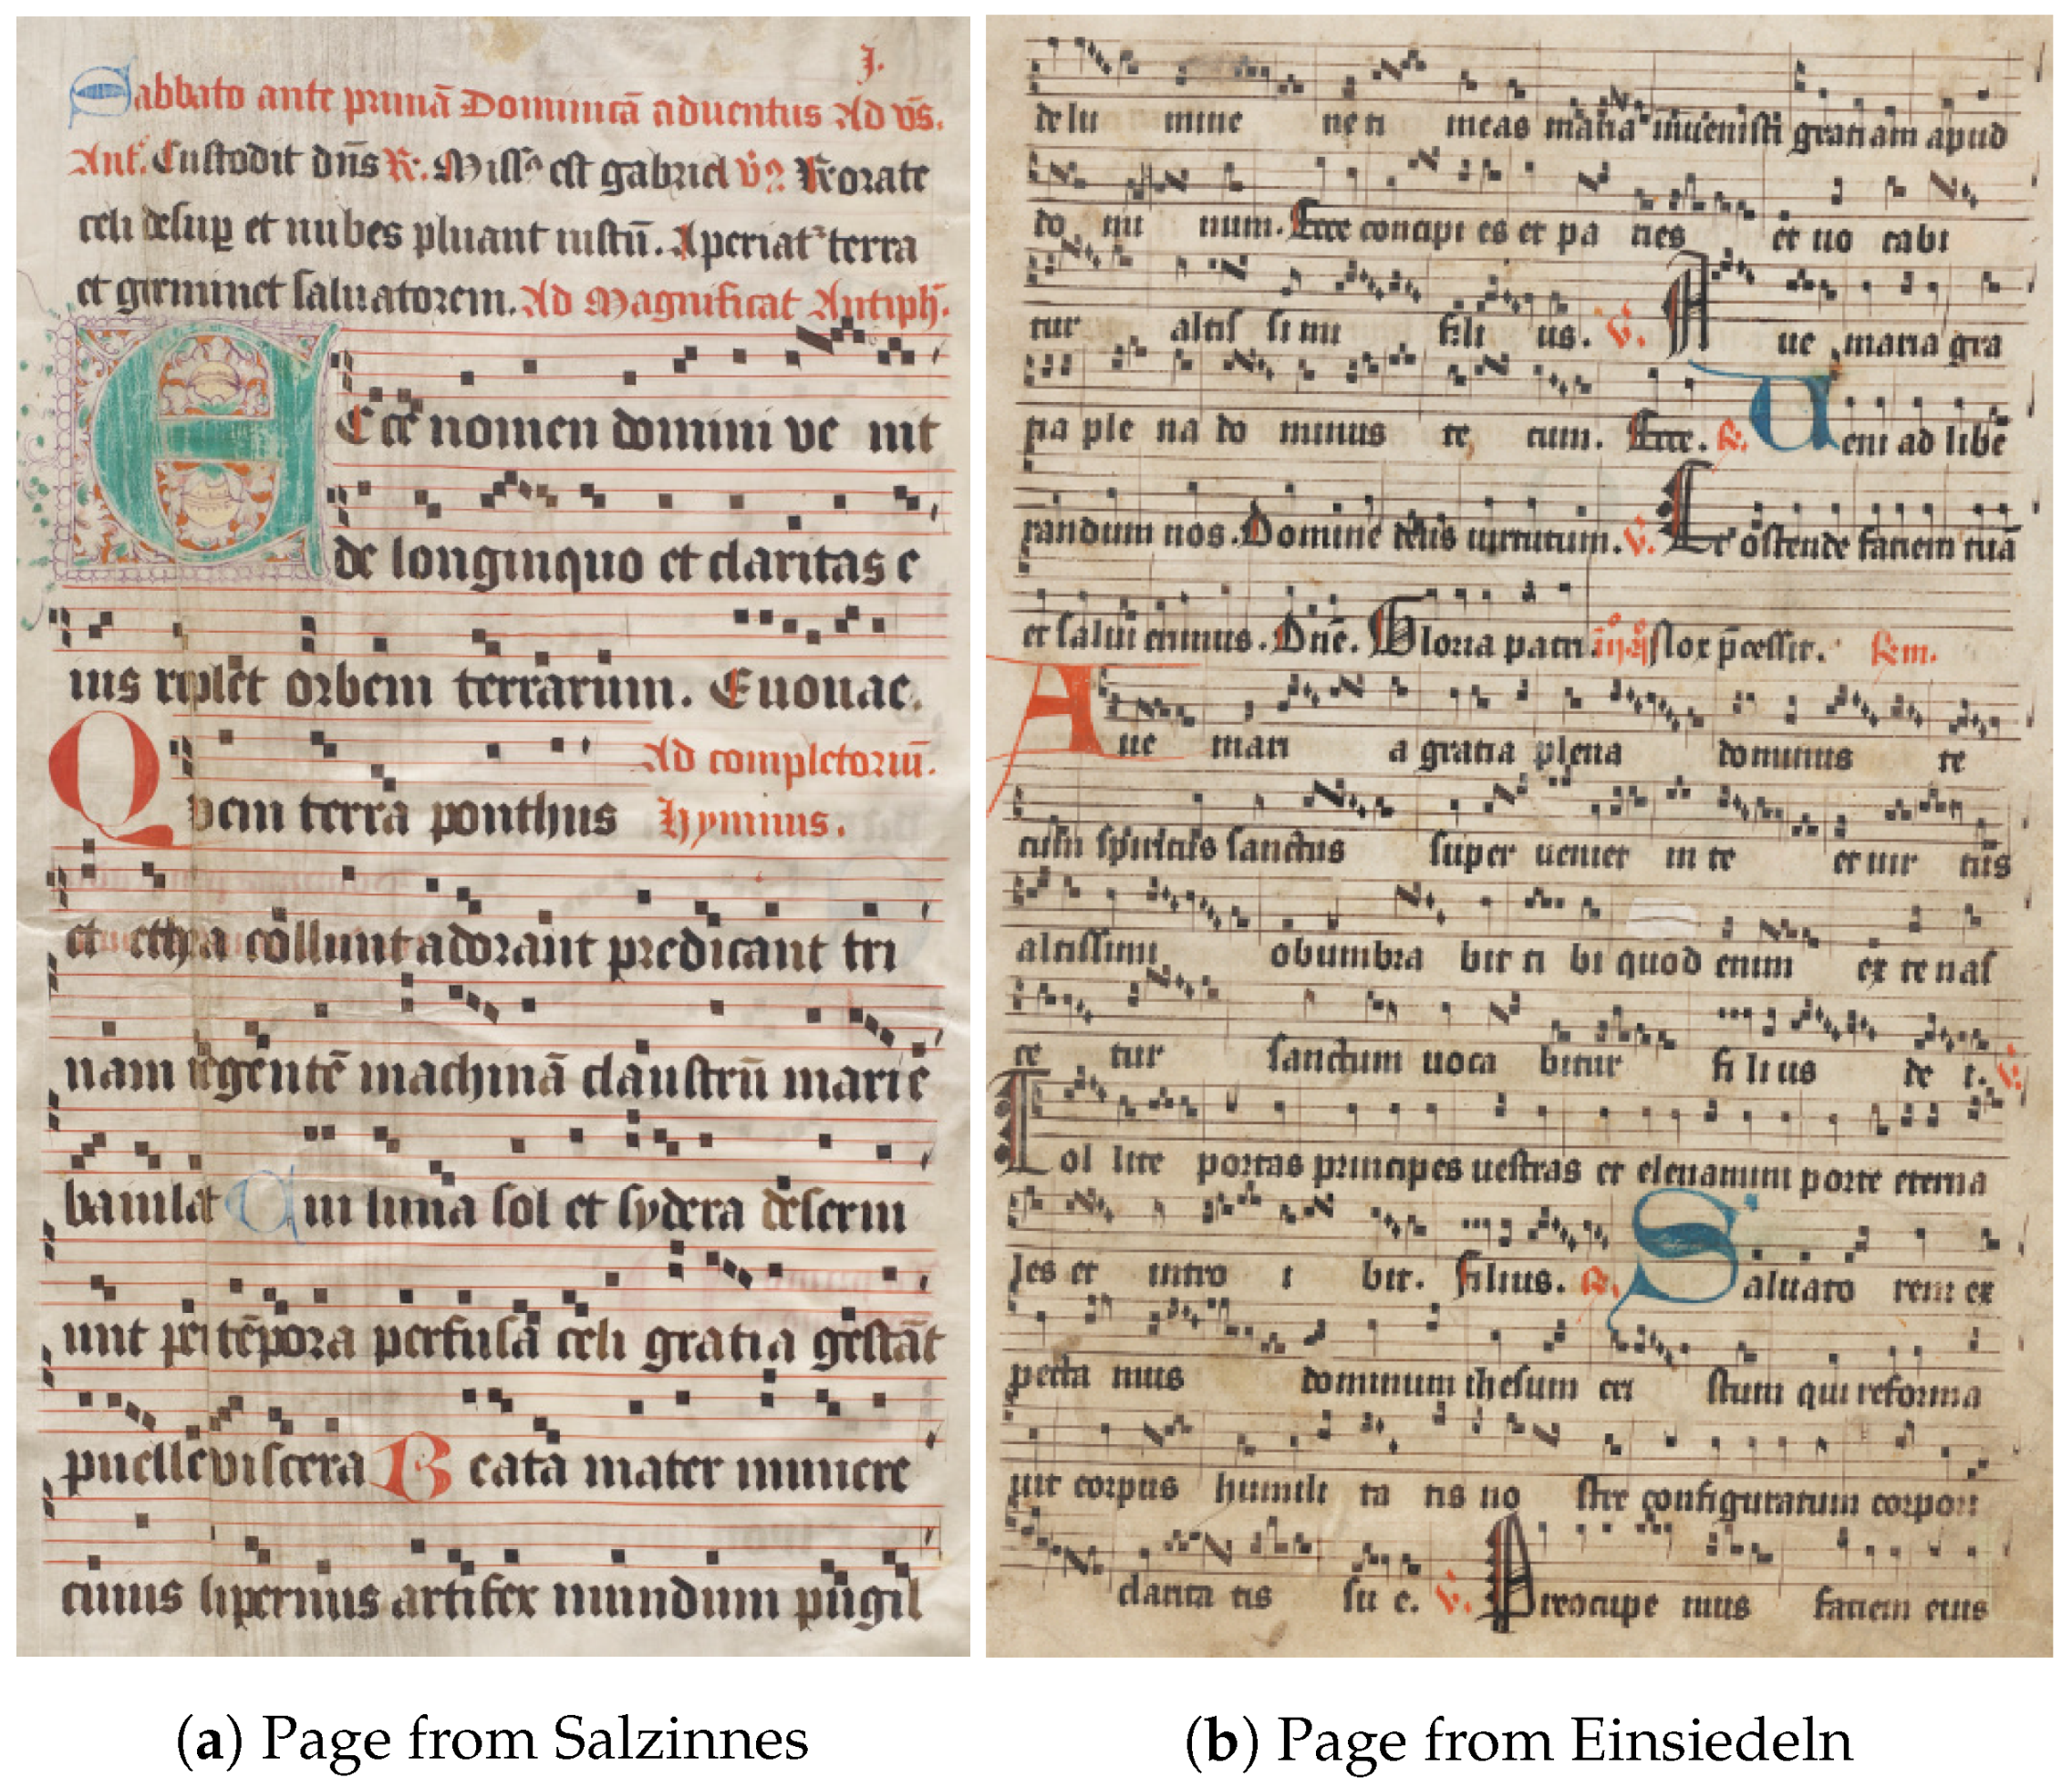 J.
Sabbato ante primā Dominicā aduentus Ad vs̄.
Ant. Custodit dn̄s R. Missᵒ est gabriel v̄. Rorate
celi desup et nubes pluant iustū. Aperiat terra
et germinet saluatorem. Ad Magnificat Antiph.
E Ecce nomen domini ve nit
de longinquo et claritas e
ius replet orbem terrarum. Euouae.
Ad completoriū.
Quem terra ponthus Hymnus.
et ethera collunt adorant predicant tri
nam regentē machinā claustrū marie
baiulat Cui luna sol et sydera deserui
unt per tēpora perfusa celi gratia gestāt
puelle viscera Beata mater munere
cuius supernus artifex mundum pugil
(a) Page from Salzinnes
de lu mine ne ti meas maria inuenisti gratiam apud
do mi num. Ecce concipi es et pa ries et uo cabi
tur altis simi fili us. V. Aue maria gra
tia ple na do minus te cum. Ecce. R. Ueni ad libe
randum nos. Domine deus uirtutum. V. Et ostende faciem tuā
et salui erimus. Dn̄e. Gloria patri
Aue mari a gratia plena dominus te
cum spiritus sanctus super ueniet in te et uir tus
altissimi obumbra bit ti bi quod enim ex te nas
ce tur sanctum uoca bitur fi li us de i. V.
Tol lite portas principes uestras et eleuamini porte eterna
les et intro i bit. filius. R. Saluato rem ex
pecta mus dominum ihesum cri stum qui reforma
uit corpus humili ta tis no stre configuratum corpori
clarita tis su e. V. Preocupe mus faciem eius
(b) Page from Einsiedeln